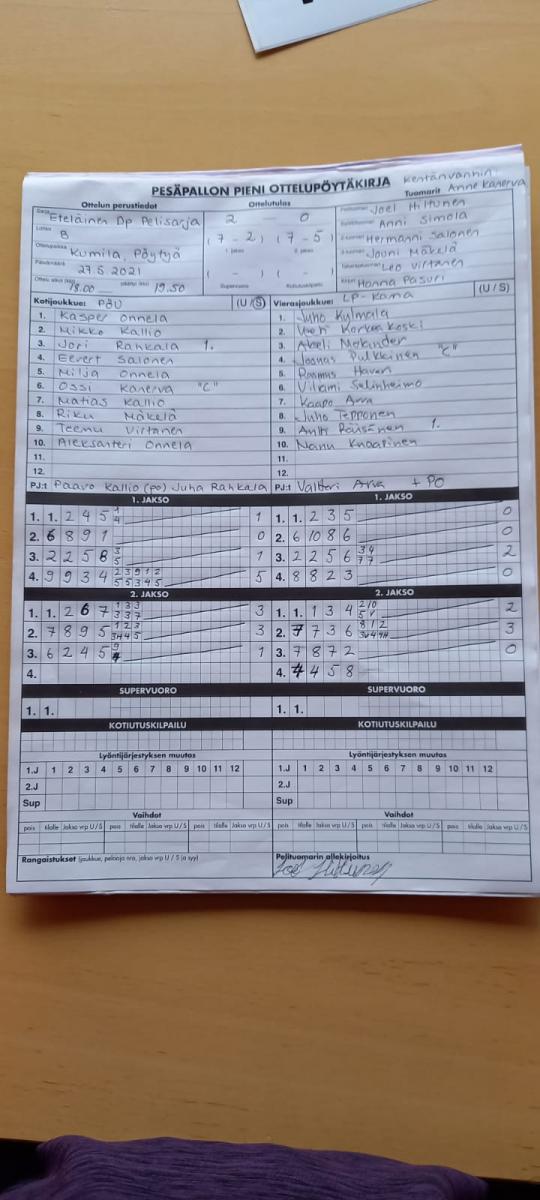 PESÄPALLON PIENI OTTELUPÖYTÄKIRJA
Kentänvanhin
Tuomarit Anne Kanerva
Ottelun perustiedot
Ottelutulos
Sarja
Eteläinen Dp Pelisarja
2 - 0
Joel Hiltunen
Lohko
B
(7 - 2) (7 - 5)
Anni Simola
1. jakso 2. jakso
Hermanni Salonen
Ottelupaikka
Kumila, Pöytyä
Jouni Mäkelä
Päivämäärä
27.5 2021
( - ) ( - )
Leo Virtanen
Ottelu alkoi (klo) 18.00 päättyi (klo) 19.50
Supervuoro Kotiutuskilpailu
Hanna Pasuri
Kotijoukkue: PöU (U / S)
Vierasjoukkue: LP-Kama (U / S)
1. Kasper Onnela
1. Juho Kylmälä
2. Mikko Kallio
2. Korkeakoski
3. Jori Rahkala 1.
3. Akseli Melander
4. Eevert Salonen
4. Joonas Pulkkinen "C"
5. Milja Onnela
5. Rasmus Haveri
6. Ossi Kanerva "C"
6. Viljami Salinheimo
7. Matias Kallio
7. Kaapo Arva
8. Riku Mäkelä
8. Juho Tepponen
9. Teemu Virtanen
9. Antti Räisänen 1.
10. Aleksanteri Onnela
10. Nanu Knaapinen
11.
11.
12.
12.
PJ:t Paavo Kallio (po) Juha Rahkala
PJ:t Valtteri Arva + PO
1. JAKSO
1. JAKSO
1. 1. 2 4 5 1
1. 1. 2 3 5 0
2. 6 8 9 1 0
2. 6 10 8 6 0
3. 2 2 5 8 3 5 1
3. 2 2 5 6 3 4 7 7 2
4. 9 9 3 4 2 3 9 1 2 5 5 3 4 5 5
4. 8 8 2 3 0
2. JAKSO
2. JAKSO
1. 1. 2 6 7 1 3 3 3 3 7 3
1. 1. 1 3 4 2
2. 7 8 9 5 1 2 3 3
2. 7 7 3 6 8 1 2 3
3. 6 2 4 5 1
3. 7 8 7 2 0
4.
4. 4 4 5 8
SUPERVUORO
SUPERVUORO
1. 1.
1. 1.
KOTIUTUSKILPAILU
KOTIUTUSKILPAILU
Lyöntijärjestyksen muutos
Lyöntijärjestyksen muutos
1.J 1 2 3 4 5 6 7 8 9 10 11 12
1.J 1 2 3 4 5 6 7 8 9 10 11 12
2.J
2.J
Sup
Sup
Vaihdot
Vaihdot
pois tilalle Jakso vrp U / S pois tilalle Jakso vrp U / S pois tilalle Jakso vrp U / S
pois tilalle Jakso vrp U / S pois tilalle Jakso vrp U / S pois tilalle Jakso vrp U / S
Rangaistukset (joukkue, pelaaja nro, jakso vrp U / S ja syy)
Pelituomarin allekirjoitus
Joel Hiltunen